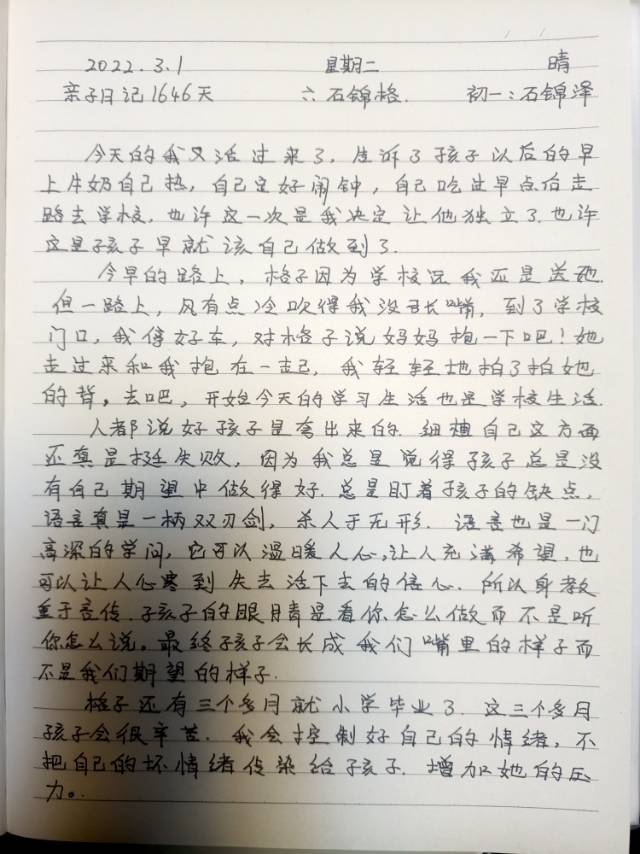 2022.3.1 星期二 晴
亲子日记1646天 六石锦格. 初一:石锦泽
今天的我又活过来了.告诉了孩子以后的早
上牛奶自己热,自己定好闹钟,自己吃过早点后走
路去学校.也许这一次是我决定让他独立了.也许
这是孩子早就该自己做到了.
今早的路上,格子因为学校远我还是送她.
但一路上,风有点冷吹得我没张嘴,到了学校
门口,我停好车,对格子说妈妈抱一下吧!她
走过来和我抱在一起,我轻轻地拍了拍她
的背,去吧,开始今天的学习生活也是学校生活.
人都说好孩子是夸出来的.细想自己这方面
还真是挺失败,因为我总是觉得孩子总是没
有自己期望中做得好.总是盯着孩子的缺点,
语言真是一柄双刃剑,杀人于无形.语言也是一门
高深的学问,它可以温暖人心,让人充满希望,也
可以让人心寒到失去活下去的信心.所以身教
重于言传.孩子的眼睛是看你怎么做而不是听
你怎么说。最终孩子会长成我们嘴里的样子而
不是我们期望的样子.
格子还有三个多月就小学毕业了.这三个多月
孩子会很辛苦.我会控制好自己的情绪,不
把自己的坏情绪传染给孩子.增加她的压
力。